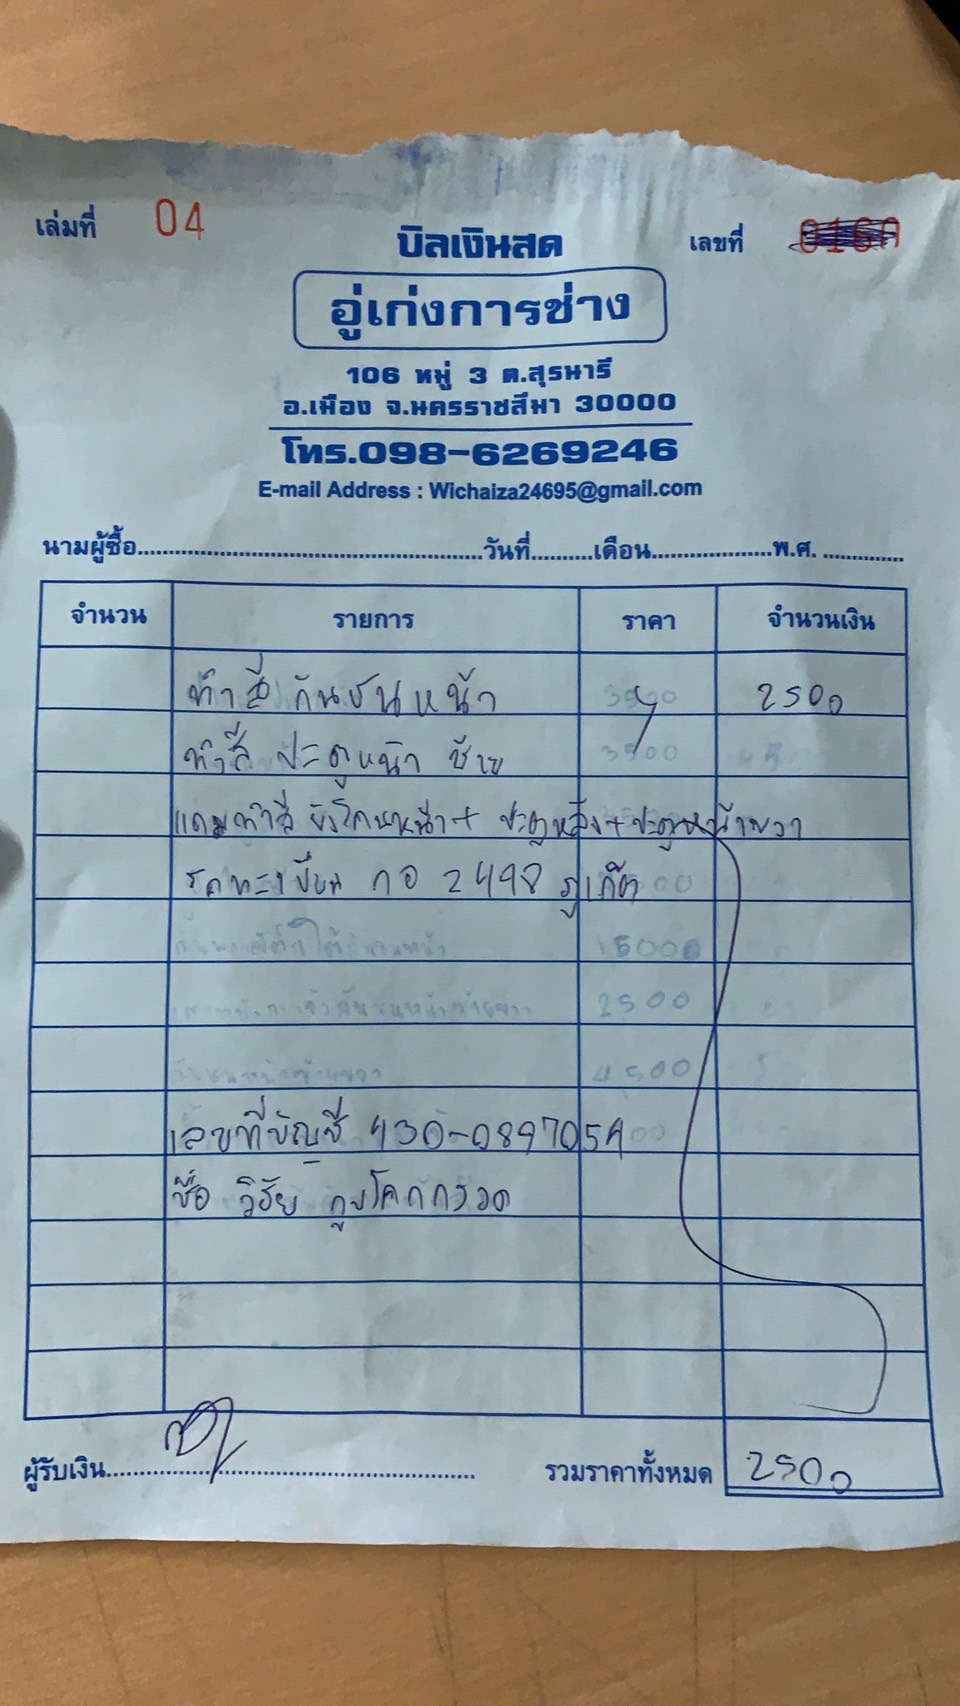 เล่มที่ 04
บิลเงินสด
เลขที่
อู่เก่งการช่าง
106 หมู่ 3 ต.สุรนารี
อ.เมือง จ.นครราชสีมา 30000
โทร.098-6269246
E-mail Address : Wichaiza24695@gmail.com
นามผู้ซื้อ วันที่ เดือน พ.ศ.
จำนวน รายการ ราคา จำนวนเงิน
ทำสี กันชนหน้า 2500
ทำสี ปะตูหน้า ซ้าย
แถมทำสี บังโคนหน้า + ปะตูหลัง + ปะตูหน้าขวา
รถทะเบียน กอ 2498 ภูเก็ต
15000
2500
4500
เลขที่บัญชี 430-0897054
ชื่อ วิชัย
ผู้รับเงิน รวมราคาทั้งหมด 2500